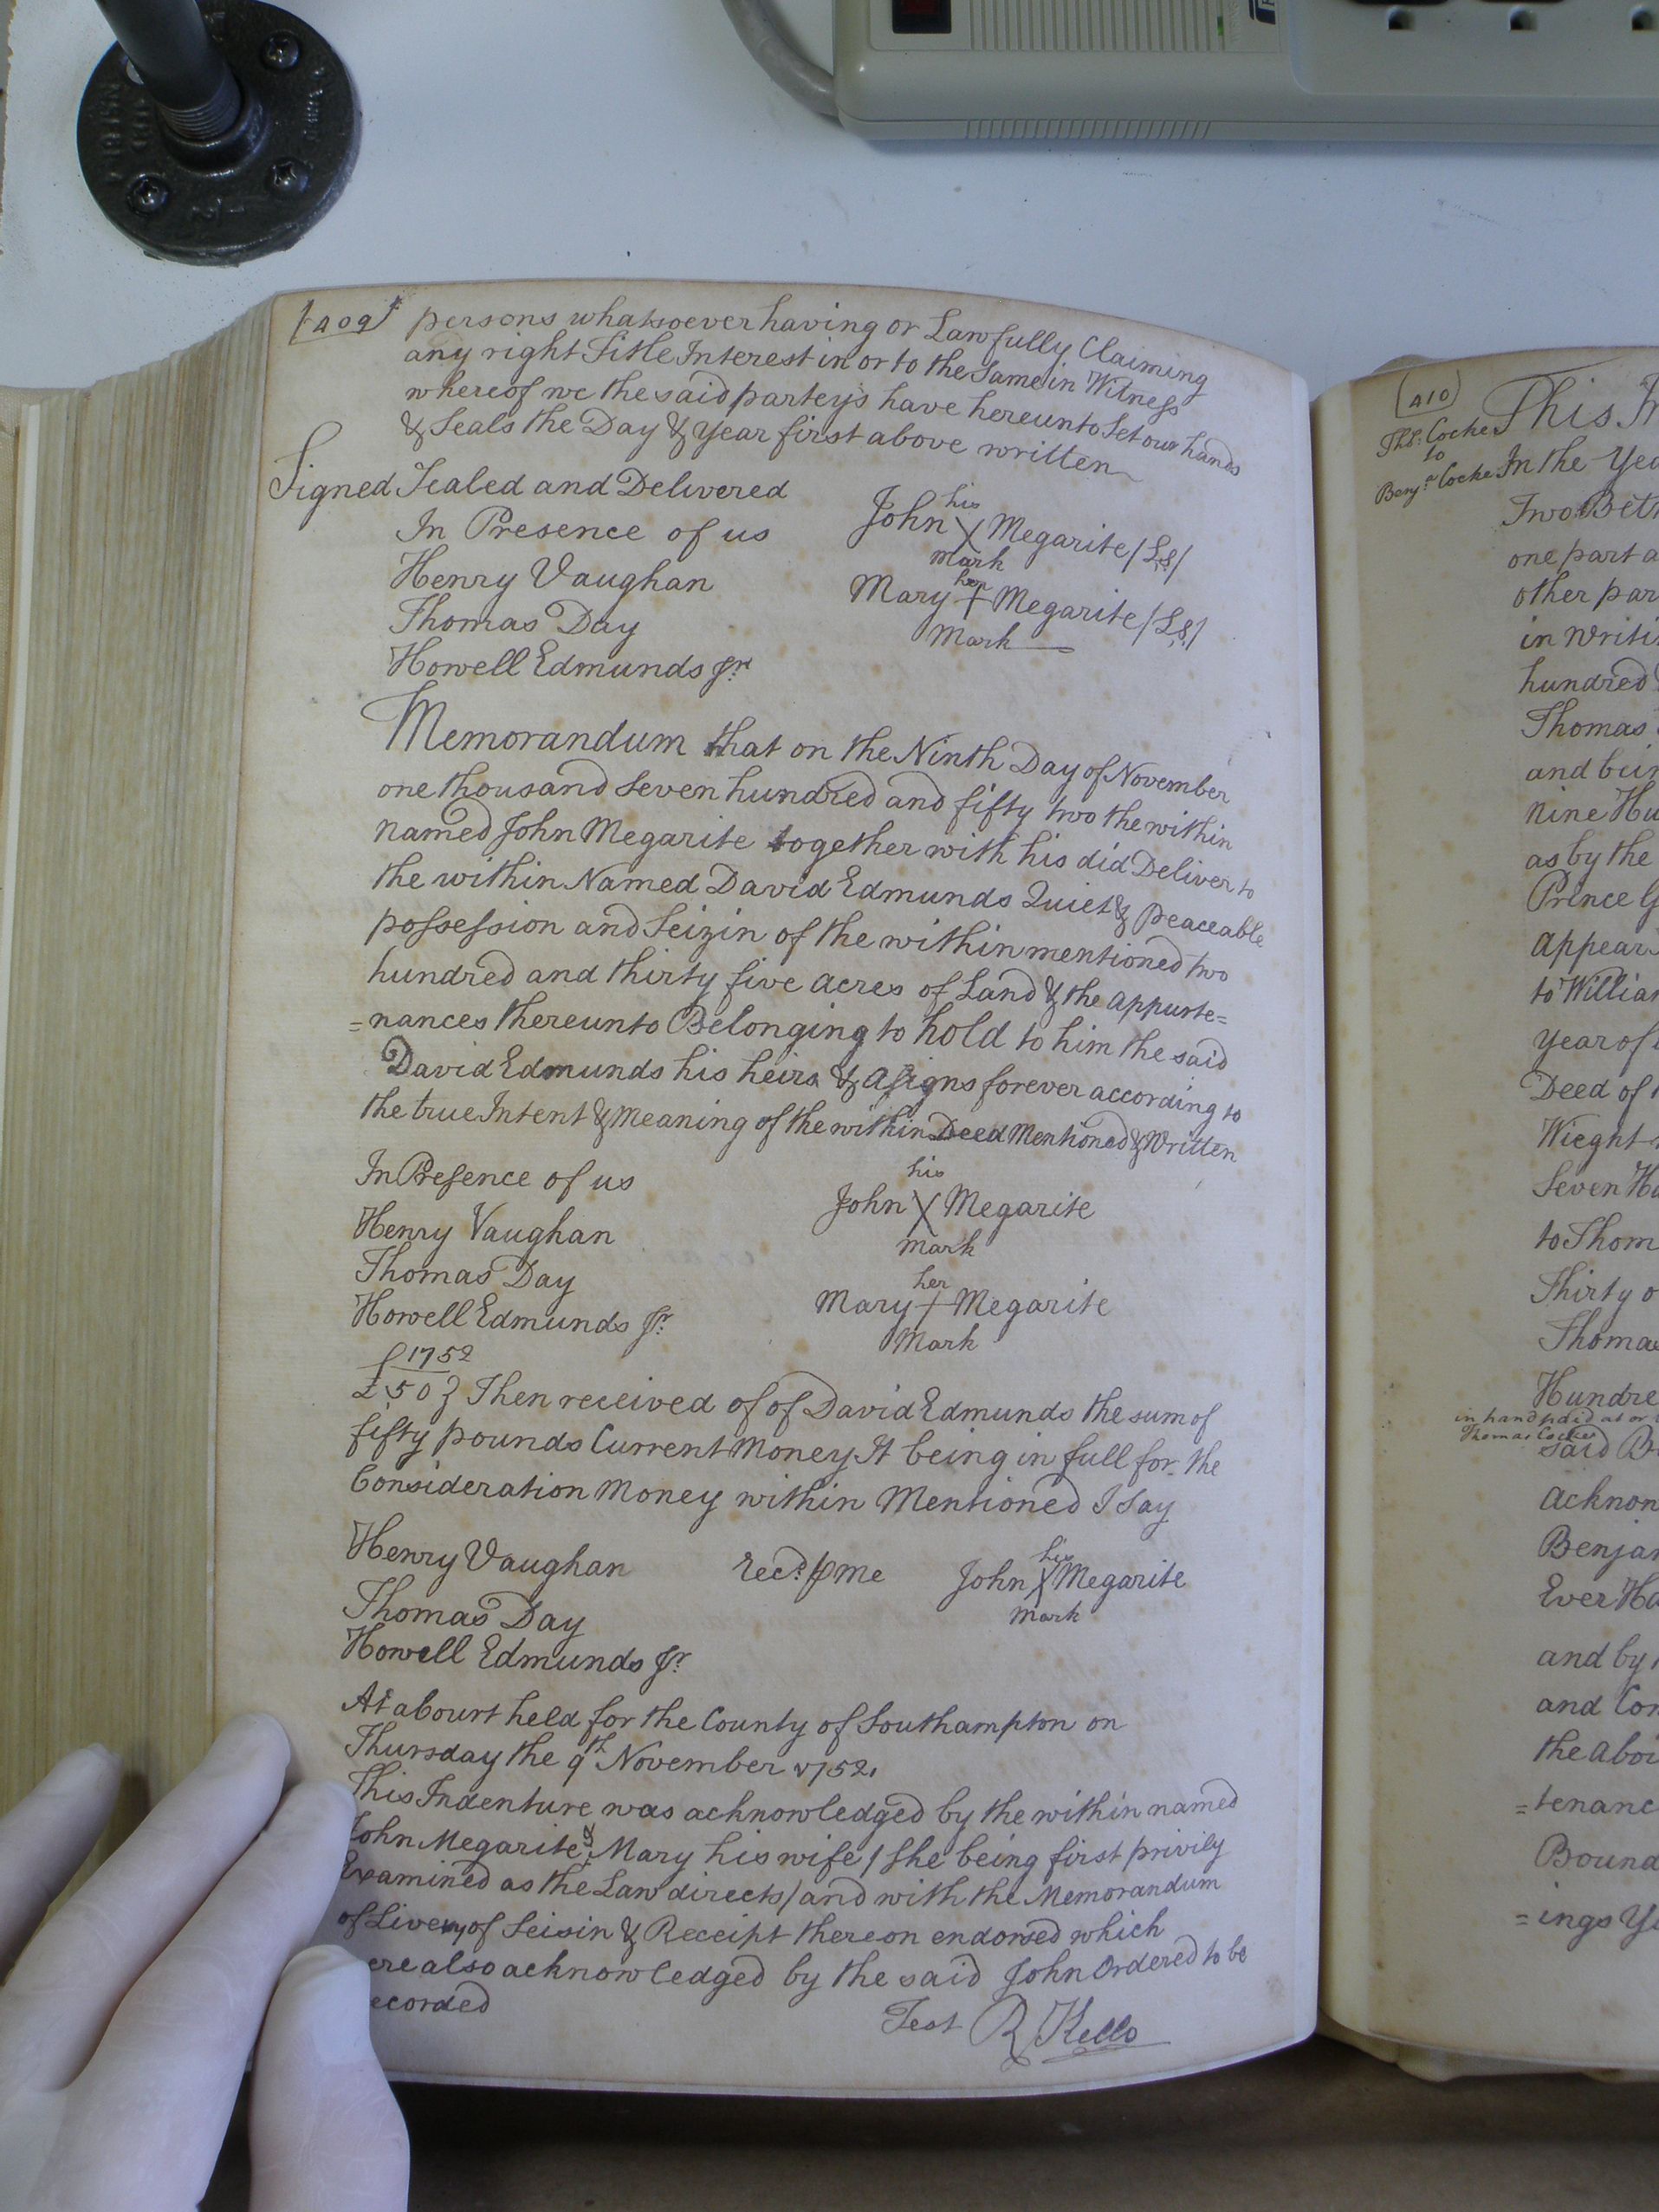 409
persons whatsoever having or Lawfully Claiming
any right Title Interest in or to the Same in Witness
whereof we the said partey's have hereunto Set our hands
& Seals the Day & Year first above written
Signed Sealed and Delivered
In Presence of us
Henry Vaughan
Thomas Day
Howell Edmunds Jr.
his
John X Megarite /L.S./
mark
her
Mary + Megarite /L.S./
Mark
Memorandum that on the Ninth Day of November
one thousand Seven hundred and fifty two the within
Named John Megarite together with his did Deliver to
the within Named David Edmunds Quiet & peaceable
possession and Seizin of the within mentioned two
hundred and thirty five acres of Land & the appurte=
=nances thereunto Belonging to hold to him the said
David Edmunds his heirs & Assigns forever according to
the true Intent & Meaning of the within Deed Mentioned & Written
In Presence of us
Henry Vaughan
Thomas Day
Howell Edmunds Jr.
his
John X Megarite
mark
her
Mary + Megarite
Mark
1752
£50} Then received of of David Edmunds the sum of
fifty pounds Current Money It being in full for the
Consideration Money within Mentioned I Say
Henry Vaughan
Thomas Day
Howell Edmunds Jr.
Recd. ⅌ me
his
John X Megarite
mark
At a Court held for the County of Southampton on
Thursday the 9th November 1752.
This Indenture was acknowledged by the within named
John Megarite & Mary his wife / She being first privily
Examined as the Law directs / and with the Memorandum
of Livery of Seisin & Receipt thereon endorsed which
ere also acknowledged by the said John Ordered to be
ecorded
Test R Kello
(410)
Thos. Cocke
to
Benja. Cocke
This
In the Yea
Two Bet
one part a
other par
in writi
hundred
Thomas
and bein
nine Hu
as by the
Prince G
appear
to Willia
Year of
Deed of
Wieght
Seven Hu
to Thom
Thirty o
Thoma
Hundre
in hand paid at or
Thomas Cocke
said B
acknow
Benja
Ever Ha
and by
and Con
the abov
=tenanc
Bound
=ings Ye